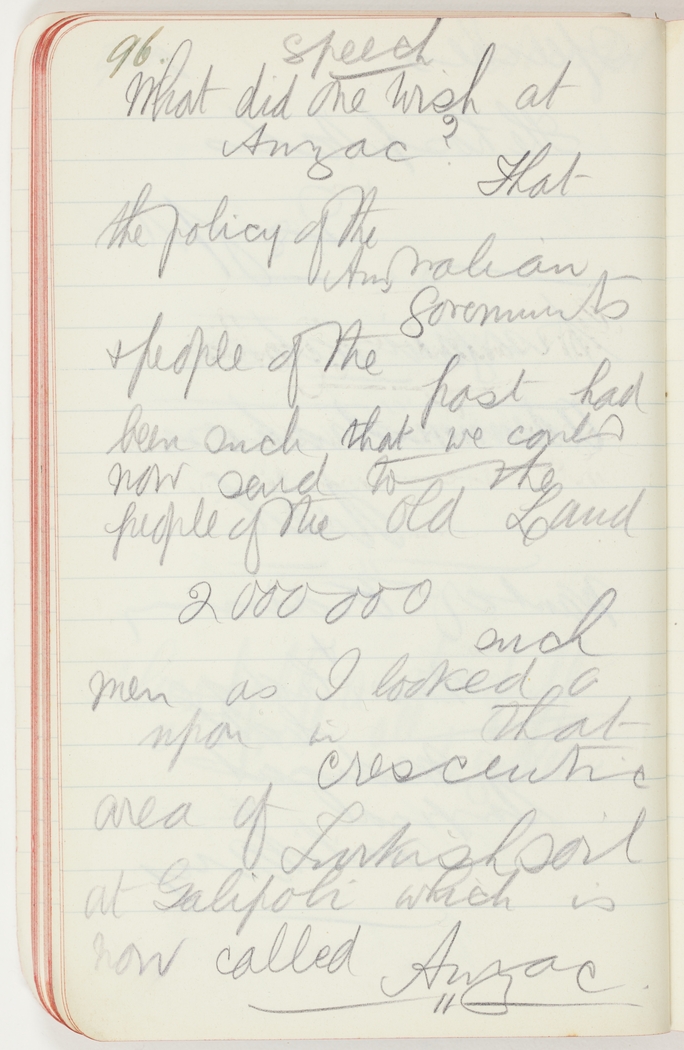 96.
Speech
What did one wish at
Anzac?
That
the policy of the
Australian
Governments
& people of the
past had
been such that we could
now send to the
people of the Old Land
2000000
such
men as I looked
upon in that
crescentic
area of
Turkish soil
at Galipoli which is
now called Anzac.
"